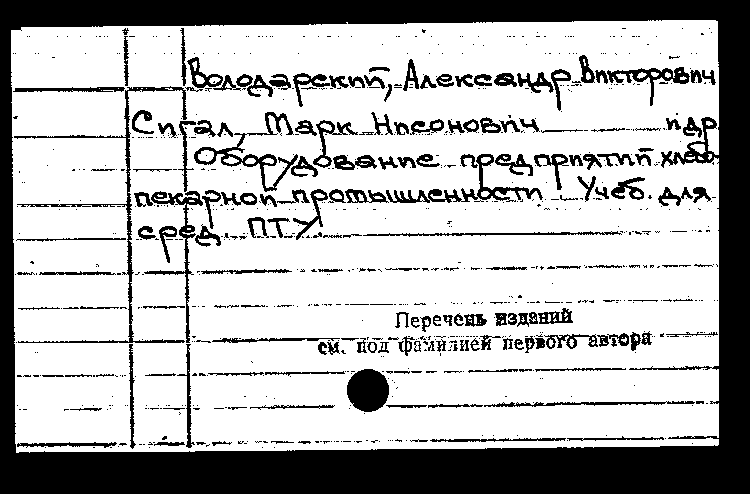 Володарский, Александр Викторович
Сигал, Марк Нисонович и др
Оборудование предприятий хлебо
пекарной промышленности. Учеб. для
сред. ПТУ.
Перечень изданий
см. под фамилией первого автора